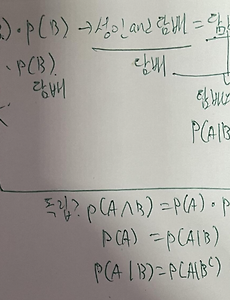 ) · P(B) → 성인 and 담배 = 담
· P(B)
담배
담배
담배
P(A|B
독립? P(A∩B) = P(A) · P
P(A) = P(A|B)
P(A|B) = P(A|Bᶜ)